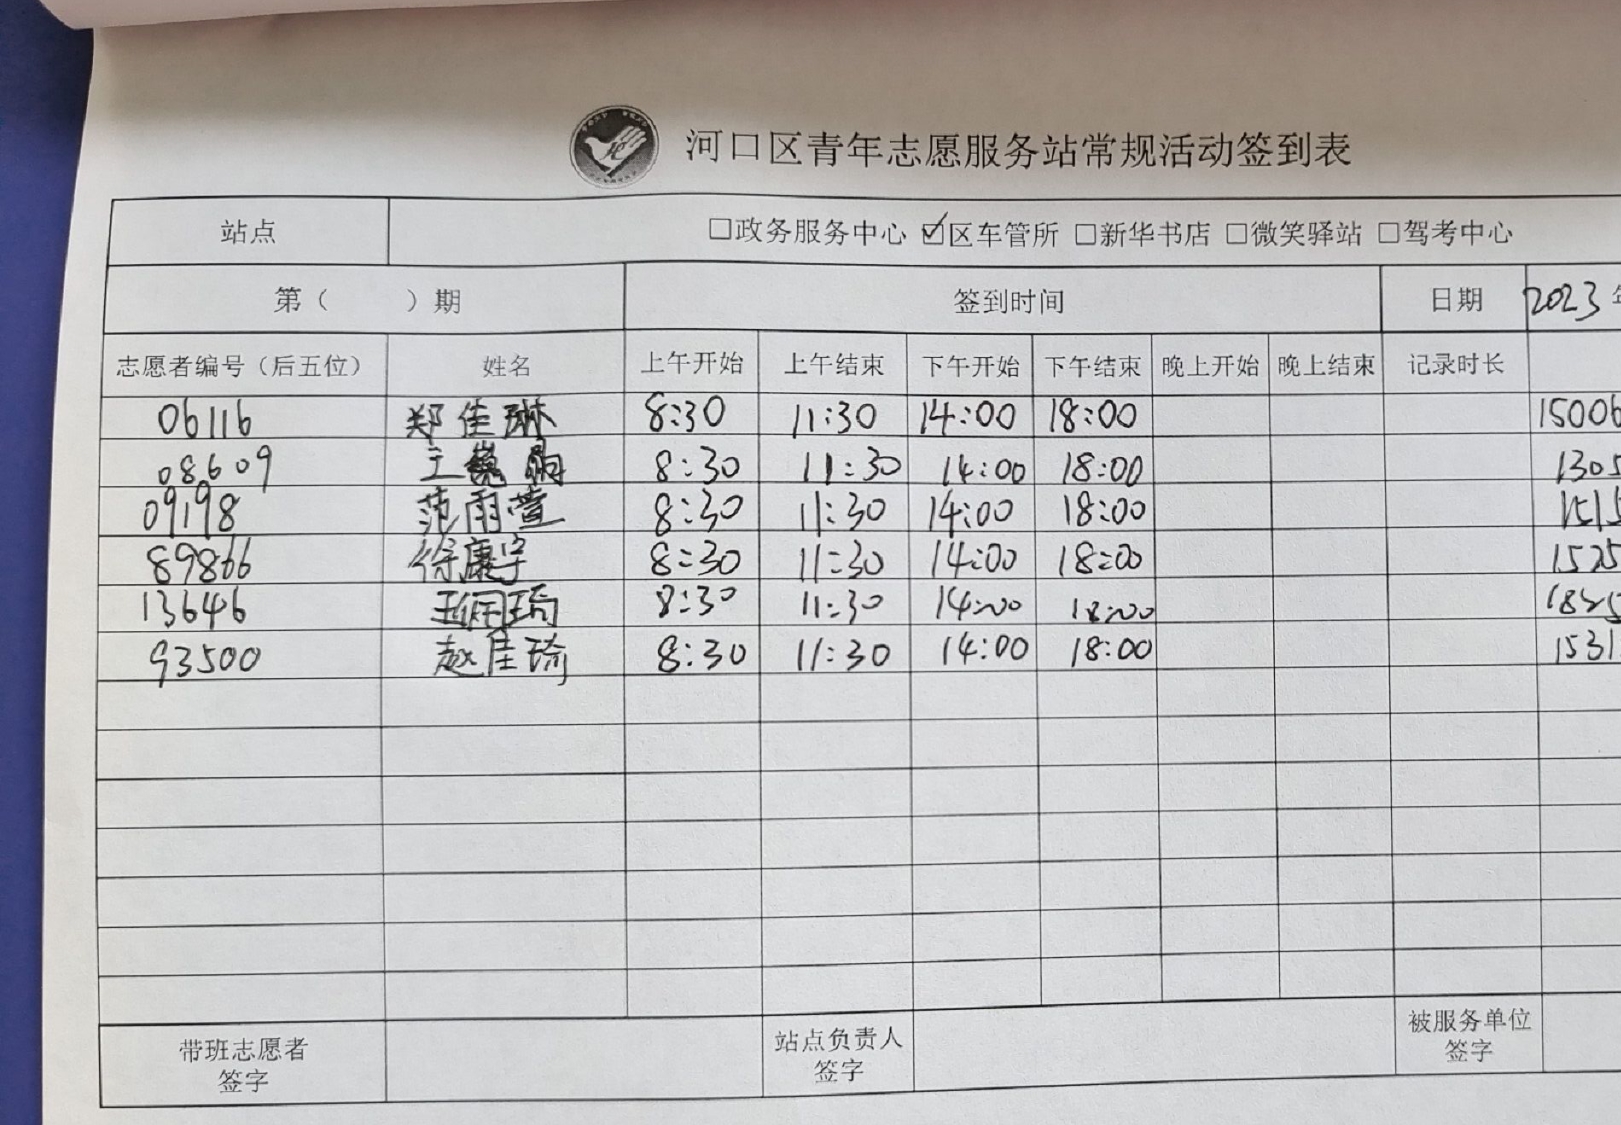 河口区青年志愿服务站常规活动签到表
站点 □政务服务中心 ☑区车管所 □新华书店 □微笑驿站 □驾考中心
第（ ）期 签到时间 日期 2023
志愿者编号（后五位） 姓名 上午开始 上午结束 下午开始 下午结束 晚上开始 晚上结束 记录时长
06116 郑佳琳 8:30 11:30 14:00 18:00 15006
08609 王 8:30 11:30 14:00 18:00 1305
09198 范雨萱 8:30 11:30 14:00 18:00 1515
89866 徐康宇 8:30 11:30 14:00 18:00 1525
13646 8:30 11:30 14:00 18:00
93500 赵佳琦 8:30 11:30 14:00 18:00 1531
带班志愿者 站点负责人 被服务单位
签字 签字 签字